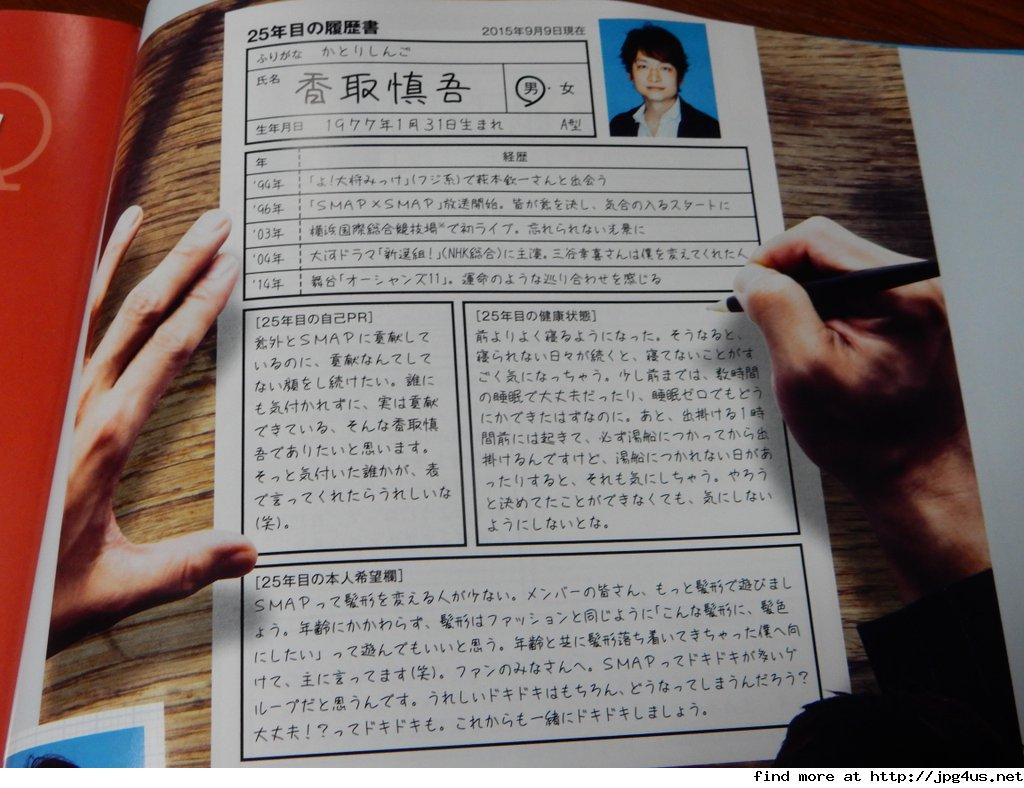 25年目の履歴書
2015年9月9日現在
ふりがな かとりしんご
氏名 香取慎吾 男・女
生年月日 1977年1月31日生まれ A型
年 経歴
'94年 「よ!大将みっけ」(フジ系)で萩本欽一さんと出会う
'96年 「SMAP×SMAP」放送開始。皆が意を決し、気合の入るスタートに
'03年 横浜国際総合競技場※で初ライブ。忘れられない光景に
'04年 大河ドラマ「新選組!」(NHK総合)に主演。三谷幸喜さんは僕を変えてくれた人
'14年 舞台「オーシャンズ11」。運命のような巡り合わせを感じる
[25年目の自己PR]
意外とSMAPに貢献して
いるのに、貢献なんてして
ない顔をし続けたい。誰に
も気付かれずに、実は貢献
できている、そんな香取慎
吾でありたいと思います。
そっと気付いた誰かが、表
で言ってくれたらうれしいな
(笑)。
[25年目の健康状態]
前よりよく寝るようになった。そうなると、
寝られない日々が続くと、寝てないことがす
ごく気になっちゃう。少し前までは、数時間
の睡眠で大丈夫だったり、睡眠ゼロでもどう
にかできたはずなのに。あと、出掛ける1時
間前には起きて、必ず湯船につかってから出
掛けるんですけど、湯船につかれない日があ
ったりすると、それも気にしちゃう。やろう
と決めてたことができなくても、気にしない
ようにしないとな。
[25年目の本人希望欄]
SMAPって髪形を変える人が少ない。メンバーの皆さん、もっと髪形で遊びまし
ょう。年齢にかかわらず、髪形はファッションと同じように「こんな髪形に、髪色
にしたい」って遊んでもいいと思う。年齢と共に髪形落ち着いてきちゃった僕へ向
けて、主に言ってます(笑)。ファンのみなさんへ。SMAPってドキドキが多いグ
ループだと思うんです。うれしいドキドキはもちろん、どうなってしまうんだろう?
大丈夫!?ってドキドキも。これからも一緒にドキドキしましょう。
find more at http://jpg4us.net